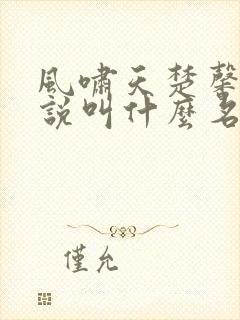 風嘯天楚馨
說叫什麼名
僅允